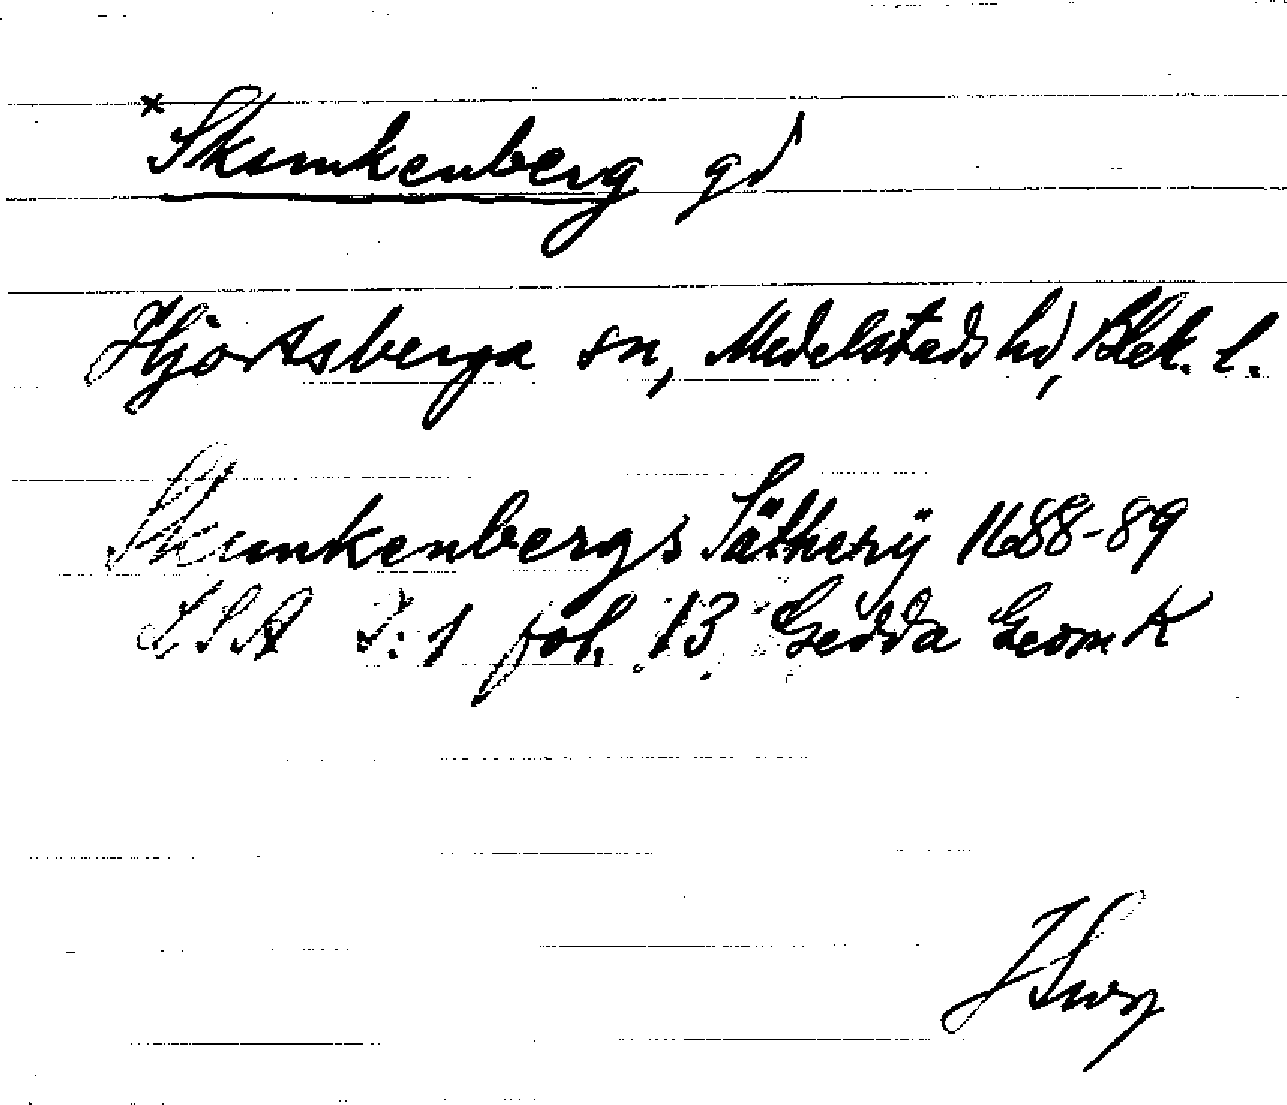 *Skunkenberg gd
Hjortsberga sn, Medelstads hd, Blek. l.
Skunkenbergs Sätherÿ 1688-89
LSA I:1 fol. 13 Gedda Geom K